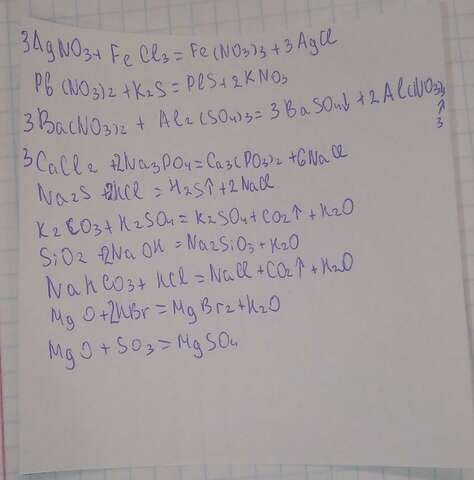 3AgNO3+ FeCl3 = Fe(NO3)3 + 3AgCl
Pb(NO3)2 + K2S = PbS + 2KNO3
3Ba(NO3)2 + Al2(SO4)3 = 3BaSO4↓ + 2Al(NO3)3
↑
3
3CaCl2 + 2Na3PO4 = Ca3(PO3)2 + 6NaCl
Na2S + 2HCl = H2S↑ + 2NaCl
K2CO3 + H2SO4 = K2SO4 + CO2↑ + H2O
SiO2 + 2NaOH = Na2SiO3 + H2O
NaHCO3 + HCl = NaCl + CO2↑ + H2O
MgO + 2HBr = MgBr2 + H2O
MgO + SO3 = MgSO4